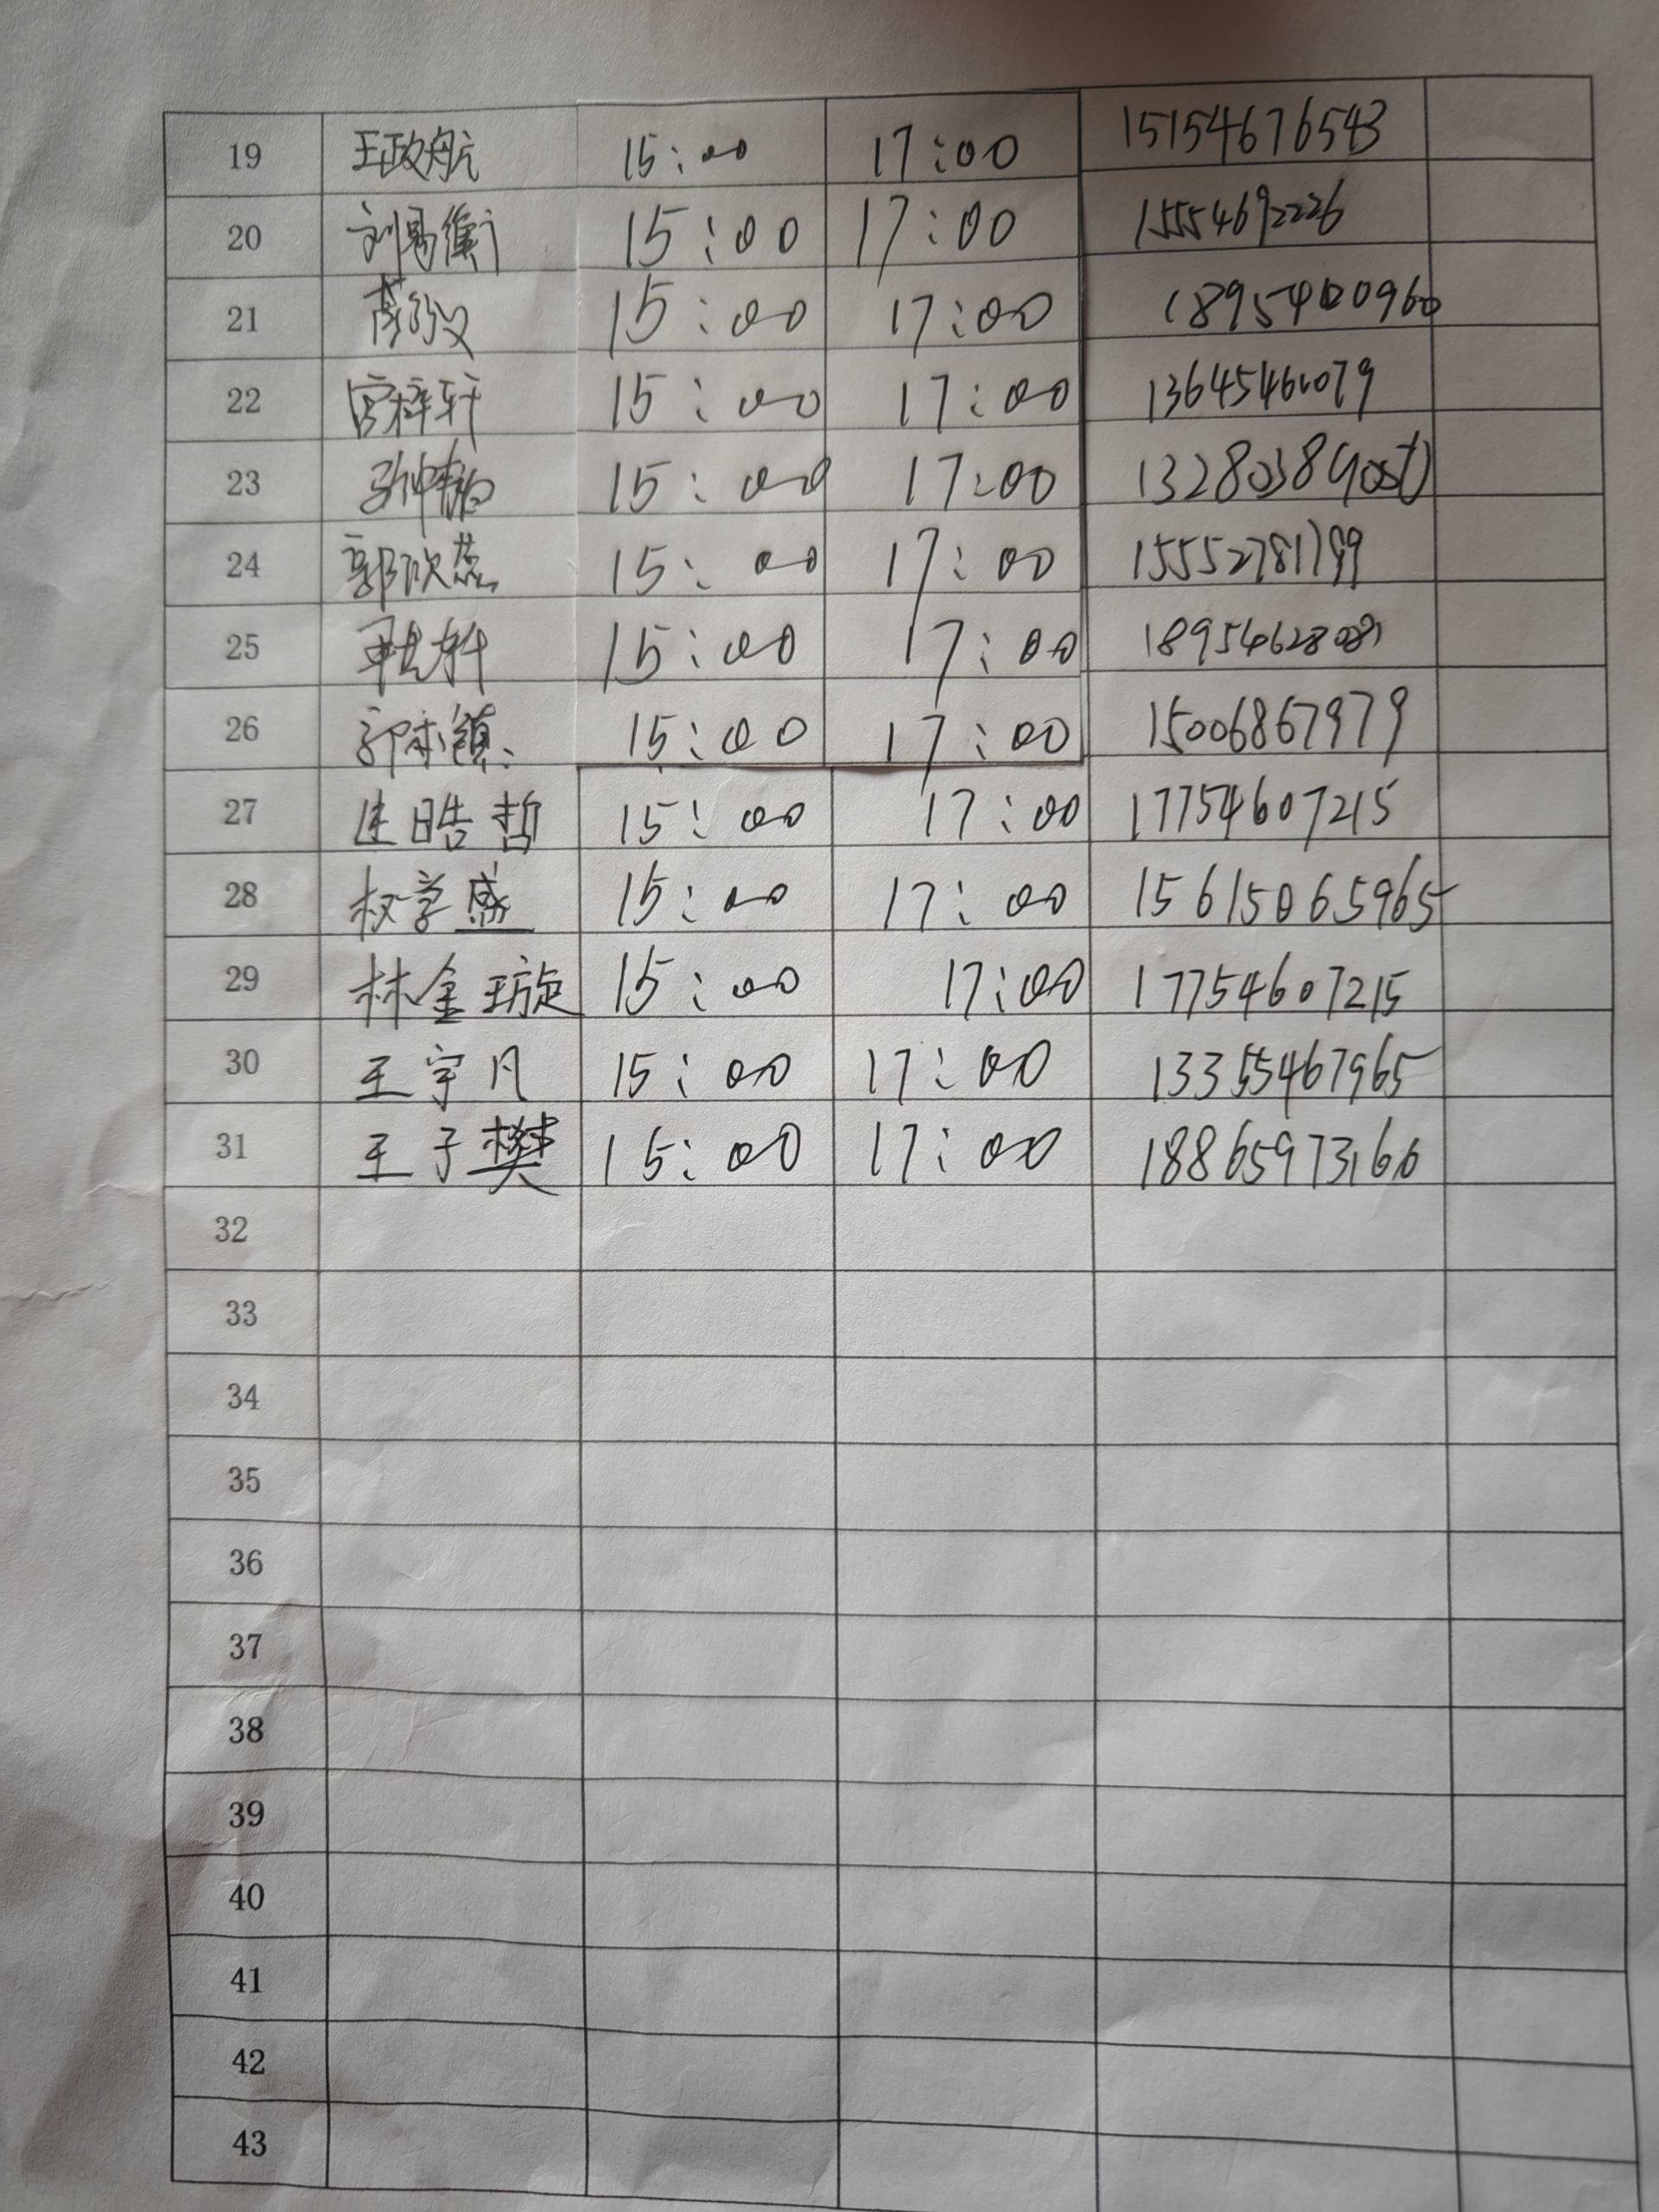 19 王政航 15:00 17:00 15154676543
20 刘易衡 15:00 17:00 15554692226
21 15:00 17:00
22 宫梓轩 15:00 17:00
23 15:00 17:00
24 郭欣蕊 15:00 17:00 15552781199
25 15:00 17:00
26 15:00 17:00 15006867979
27 皓哲 15:00 17:00 17754607215
28 权学盛 15:00 17:00 15615065965
29 林金璇 15:00 17:00 17754607215
30 王宇凡 15:00 17:00 13355467965
31 王子樊 15:00 17:00 18865973166
32
33
34
35
36
37
38
39
40
41
42
43